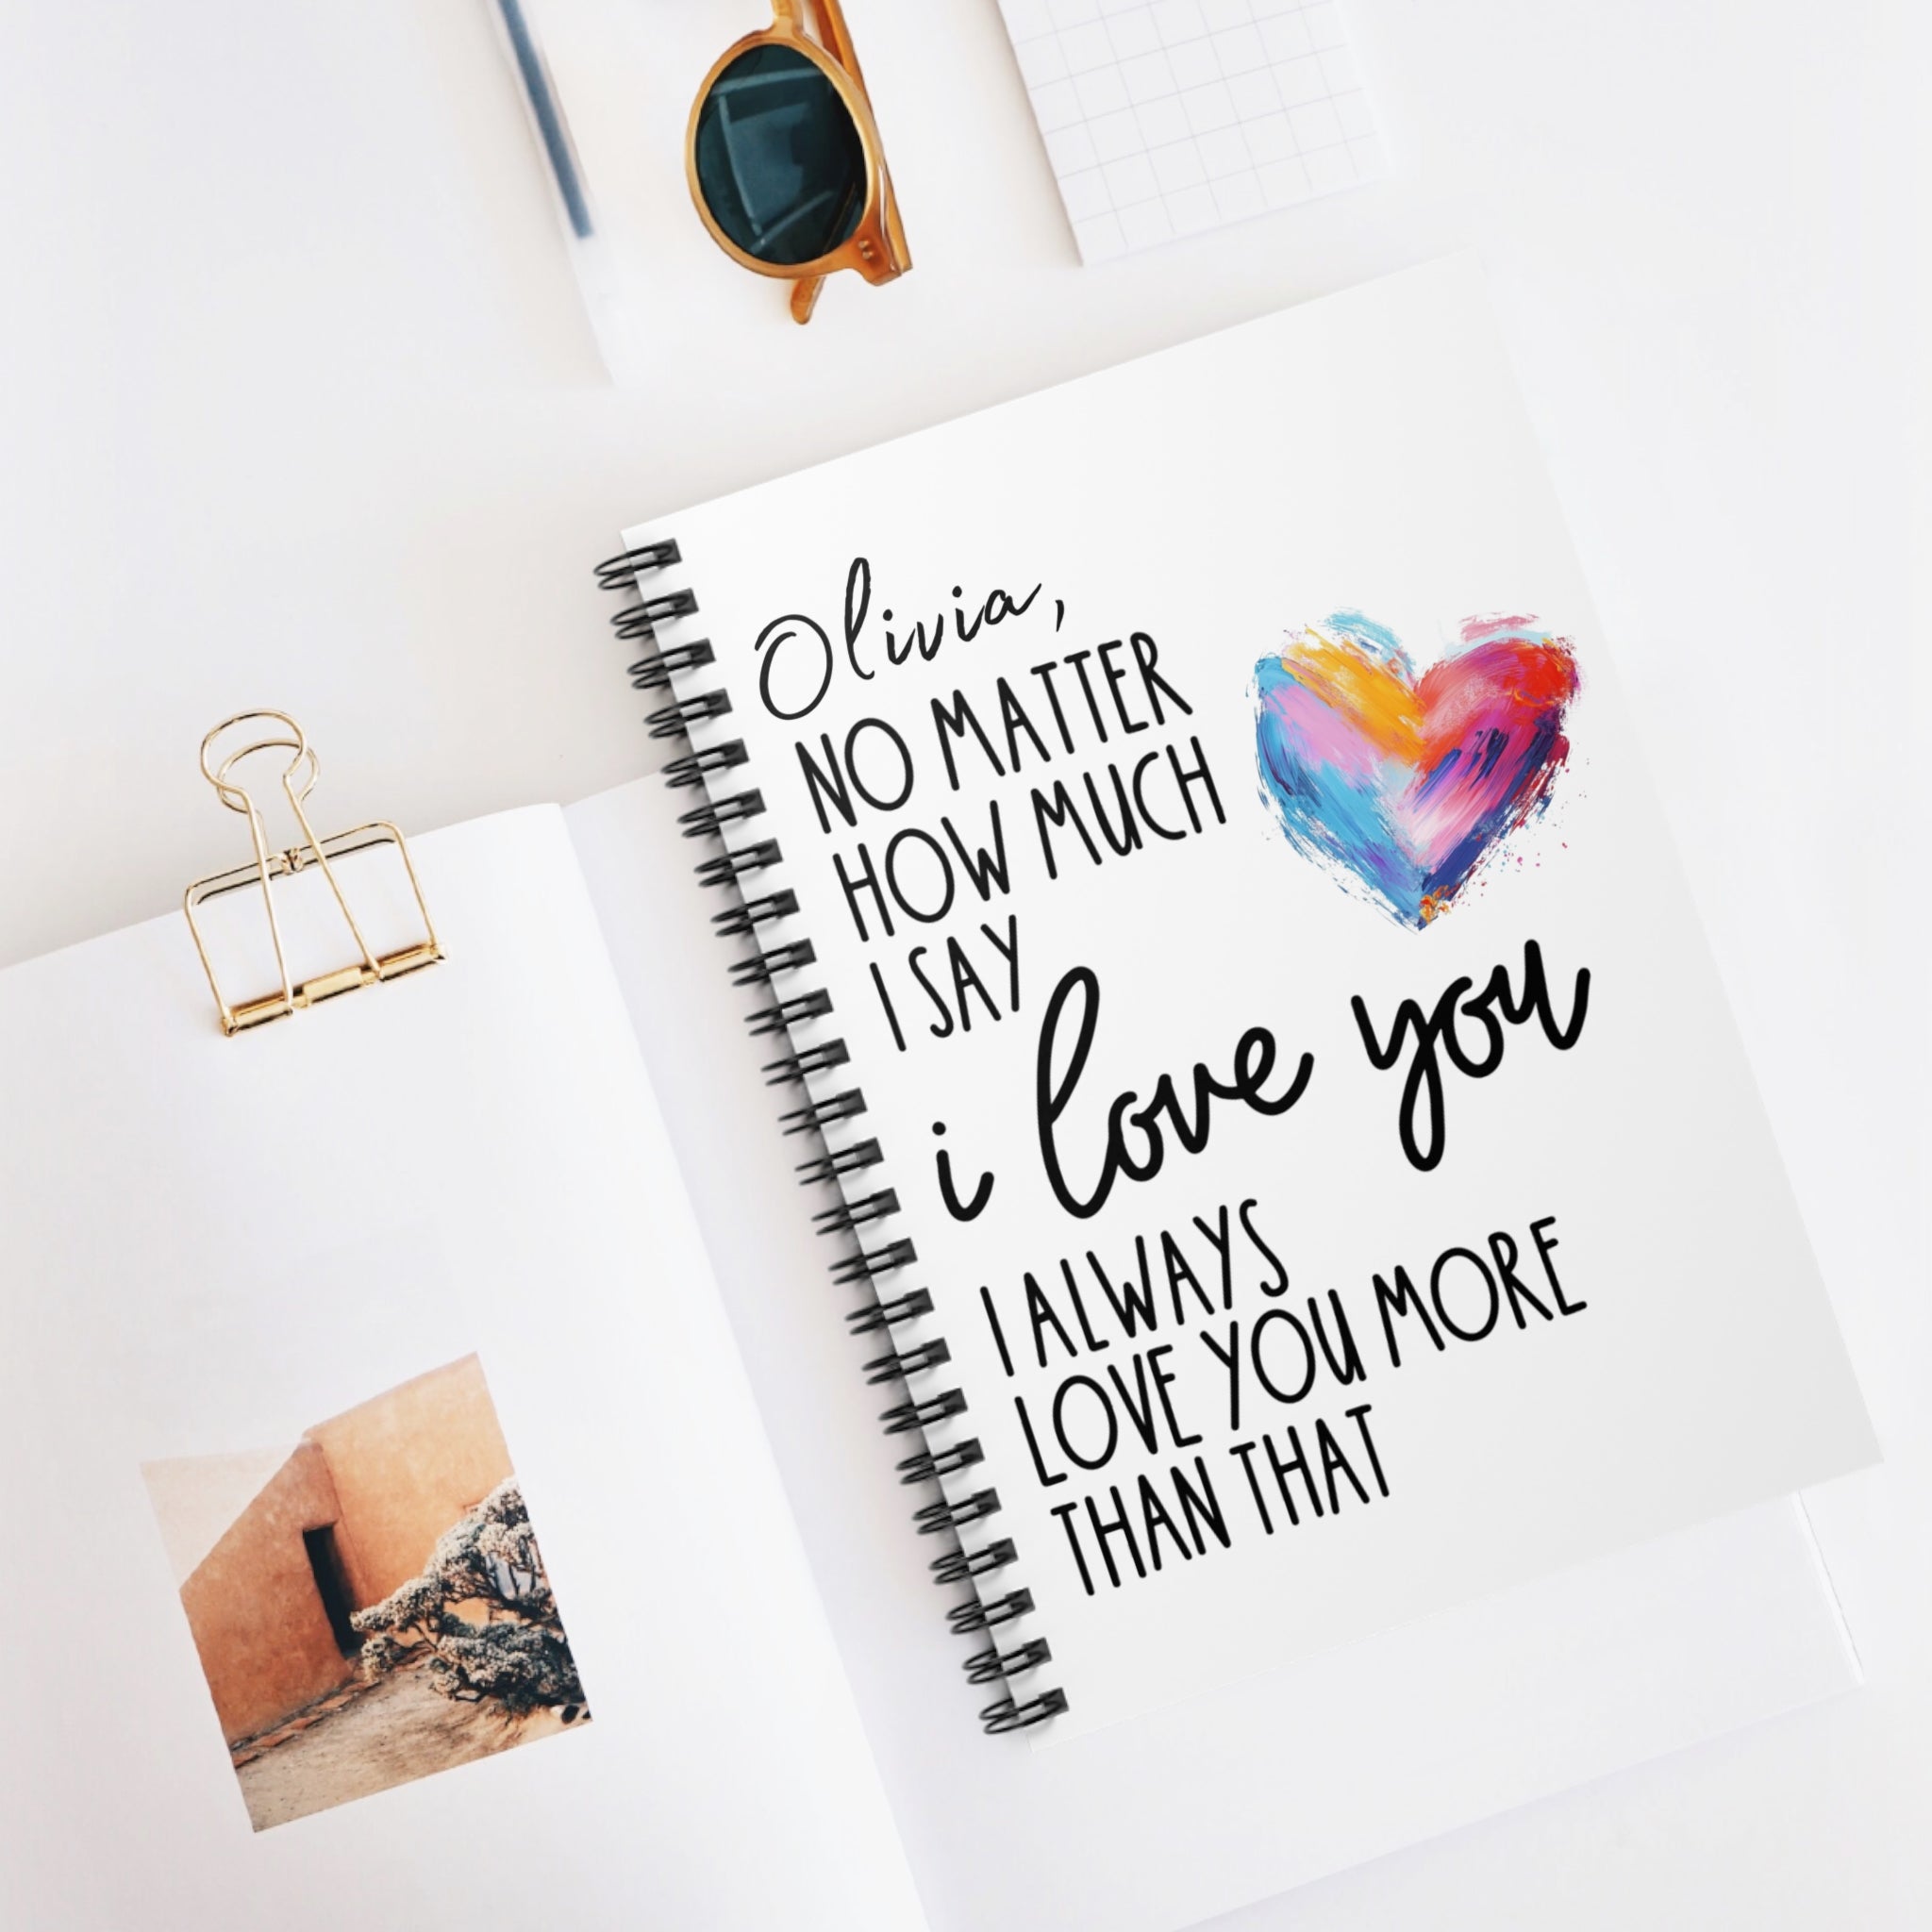 Olivia,
NO MATTER
HOW MUCH
I SAY
i love you
I ALWAYS
LOVE YOU MORE
THAN THAT